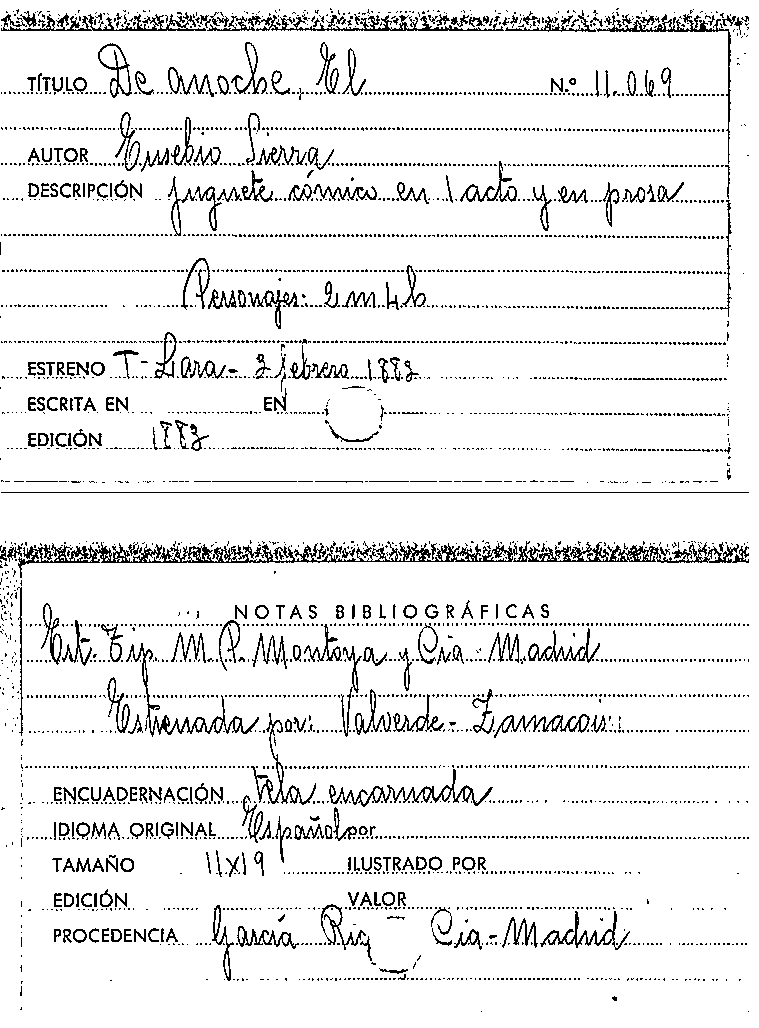 TÍTULO De anoche, El N.º 11.069
AUTOR Eusebio Sierra
DESCRIPCIÓN juguete cómico en 1 acto y en prosa
Personajes: 2 m 4 h
ESTRENO T- Lara - 3 febrero 1883
ESCRITA EN EN
EDICIÓN 1883
NOTAS BIBLIOGRÁFICAS
Est. Tip. M. P. Montoya y Cía - Madrid
Estrenada por: Valverde - Zamacois
ENCUADERNACIÓN Tela encarnada
IDIOMA ORIGINAL Español por
TAMAÑO 11x19 ILUSTRADO POR
EDICIÓN VALOR
PROCEDENCIA García Rig Cía - Madrid